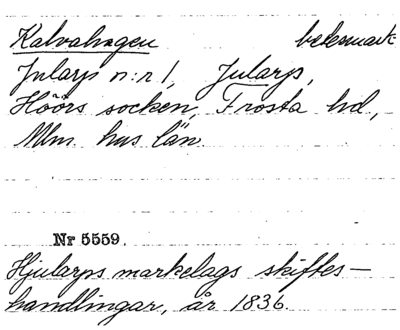 Kalvahagen betesmark
Jularp n:r 1, Jularp,
Höörs socken, Frosta hd,
Mlm. hus län.
Nr 5559.
Hjularps markelags skiftes-
handlingar, år 1836.